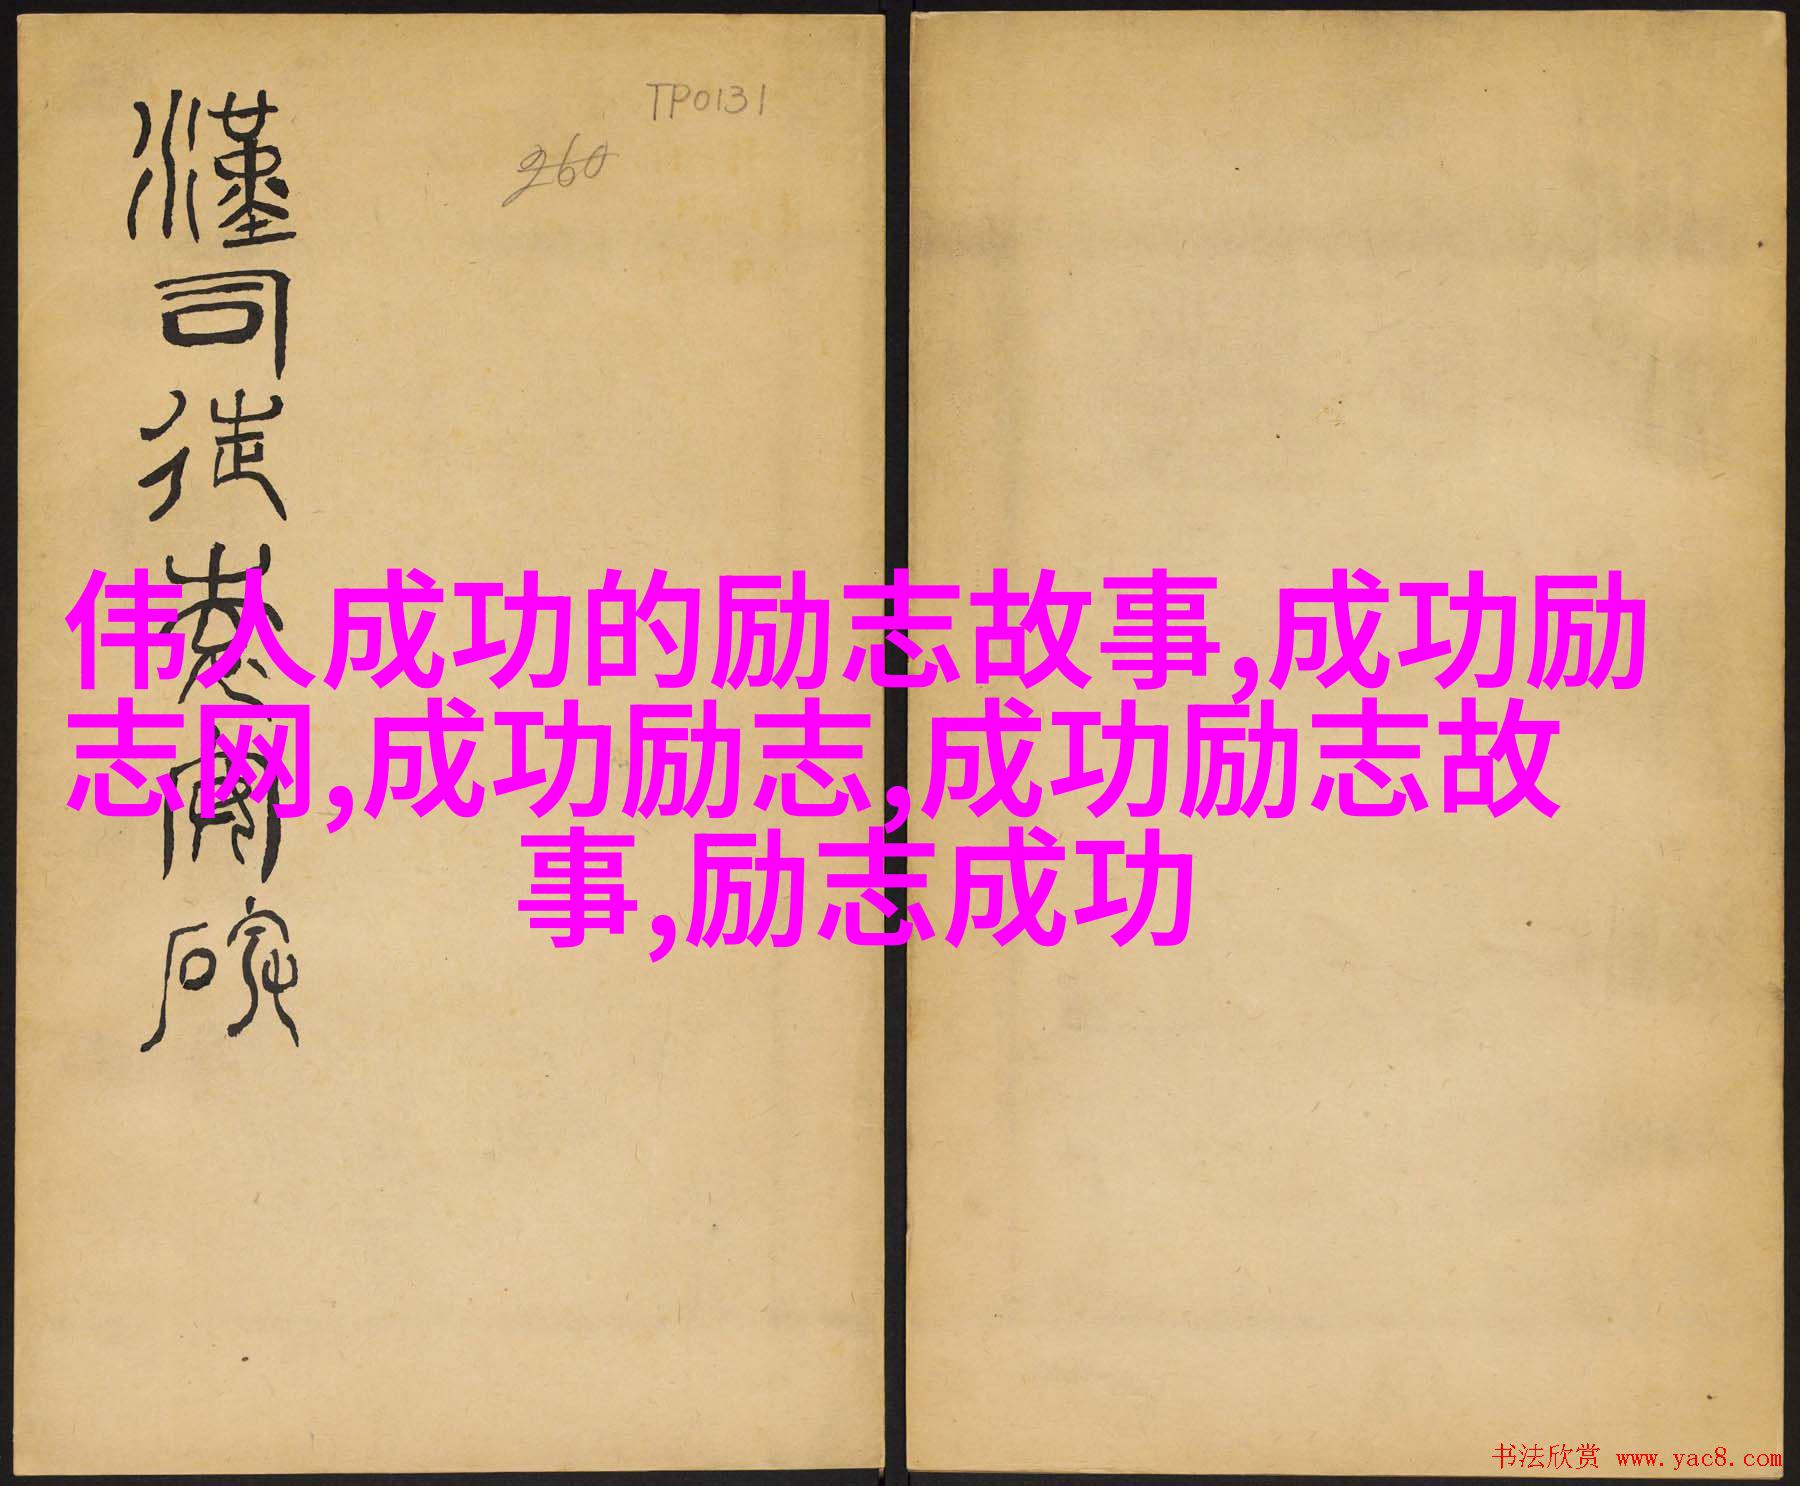 漢司徒袁安碑
TP0131
260
伟人成功的励志故事,成功励
志网,成功励志,成功励志故
事,励志成功
书法欣赏 www.yac8.com